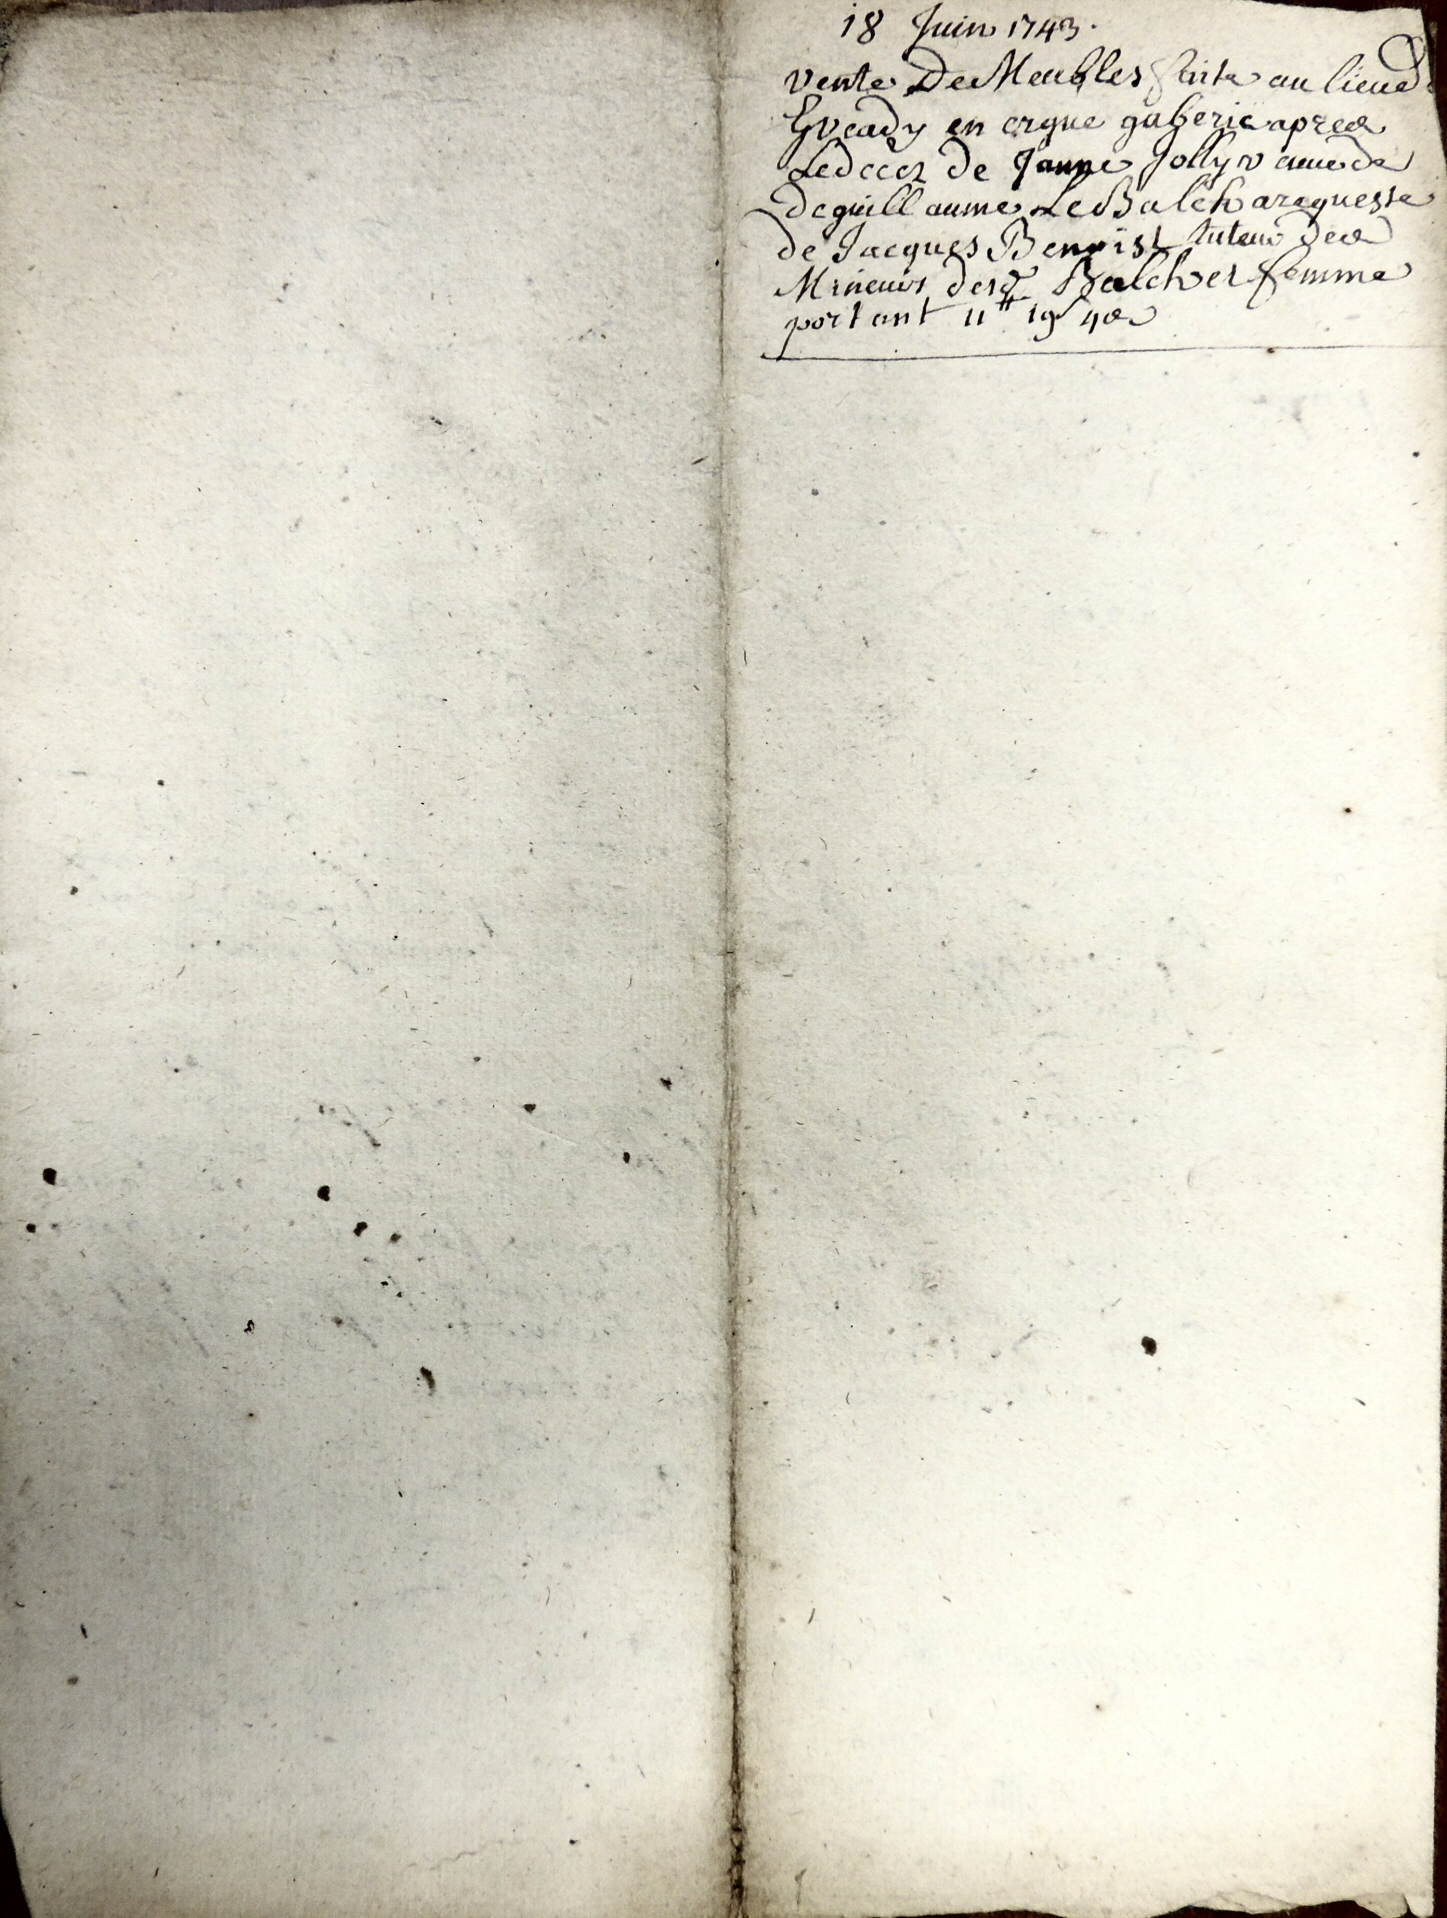 18 Juin 1743.
vente De Meubles faite au lieu de
Kveady en ergue gaberic apres
Le deces de Janne Jolly veuve de
de guillaume Le Balch a requeste
de Jacques Benoist tuteur des
Mineurs desd Balch et femme
portant 11# 19s 4d